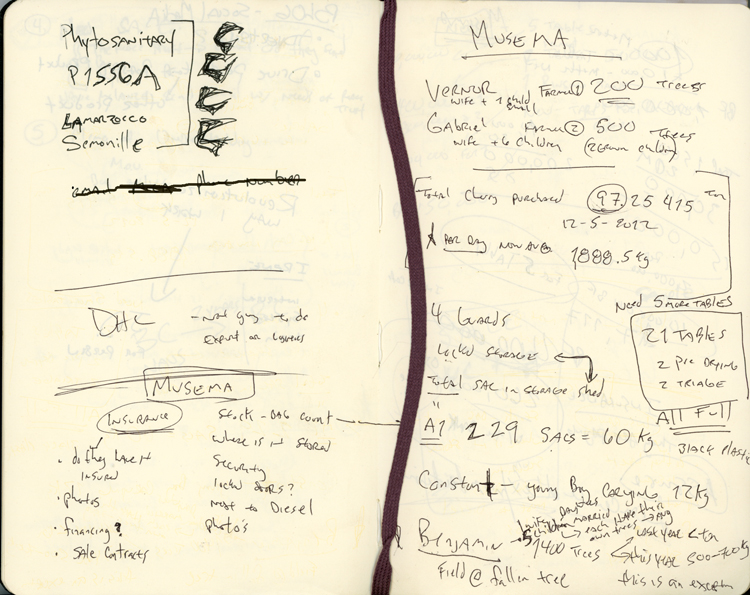 Phytosanitary
P1556A
LaMarzocco
Semonille
Phone Number
DHC
- Not going to do
export or logistics
Musema
Insurance
• do they have it
insured
• photos
• financing?
• sale contracts
Stock - BAG count
where is it stored
security
locked doors?
next to Diesel
photo's
Musema
Vernor Farmer 1 200 Trees
wife + 1 child
small
Gabriel Farmer 2 500 Trees
wife + 6 children (2 grown children)
Total Cherry purchased 97.25 415
12-5-2012
Per Day now aver 1888.5 kg
Need 5 more tables
21 Tables
2 pre drying
2 triage
All Full
Black Plastic
4 Guards
locked storage
Total sac in storage shed
"
A1 229 Sacs = 60 kg
Constant - young Boy carrying 12kg
5 children married have their
→ each
own trees
Benjamin 1400 Trees
last year
this year 500-700 kg
Field @ fallen tree
this is an